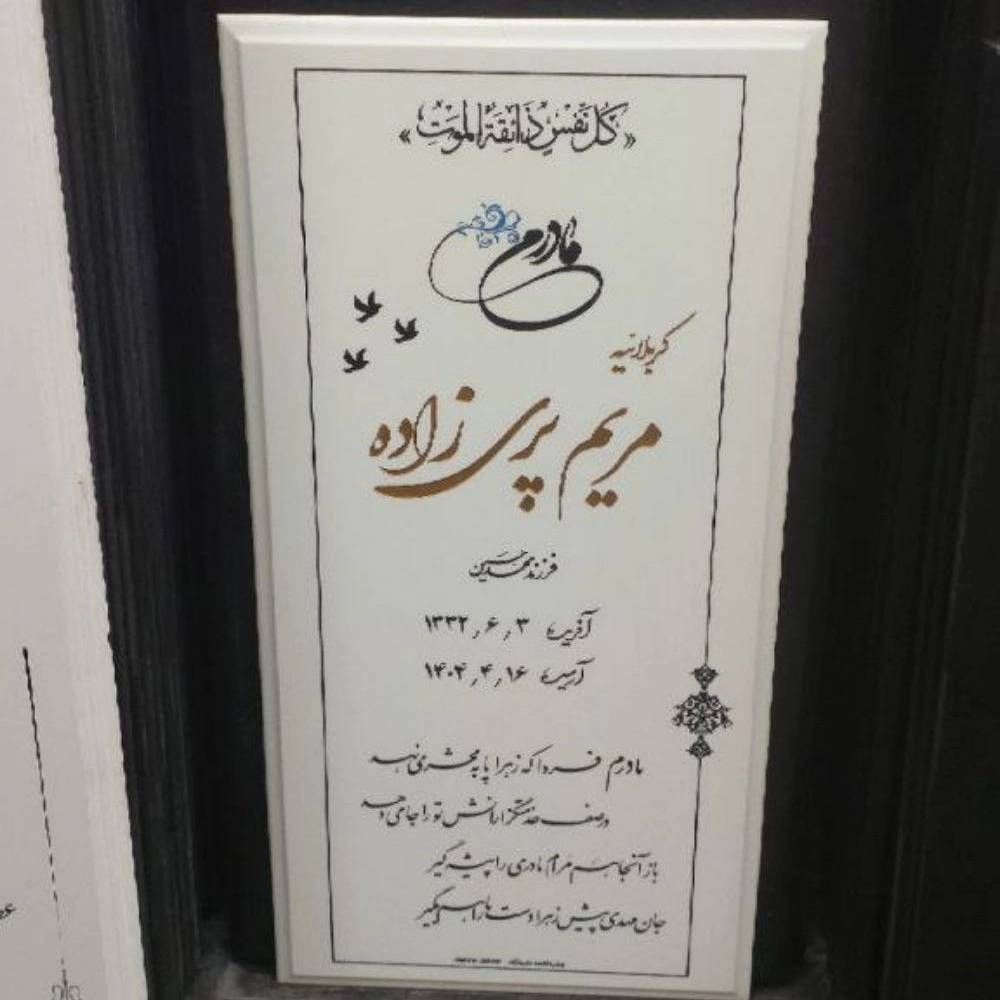 «كُلُّ نَفْسٍ ذَائِقَةُ الْمَوْتِ»
مادرم
کربلائیه
مریم پری زاده
فرزند محمدحسین
آفرینش ۱۳۳۲٫۶٫۳
آرامش ۱۴۰۴٫۴٫۱۶
مادرم فردا که زهرا پا به محشر می نهد
در صف خدمتگزارانش تو را جا می دهد
باز آنجا هم مرام مادری را پیشه گیر
جان مهدی پیش زهرا دست ما را هم بگیر